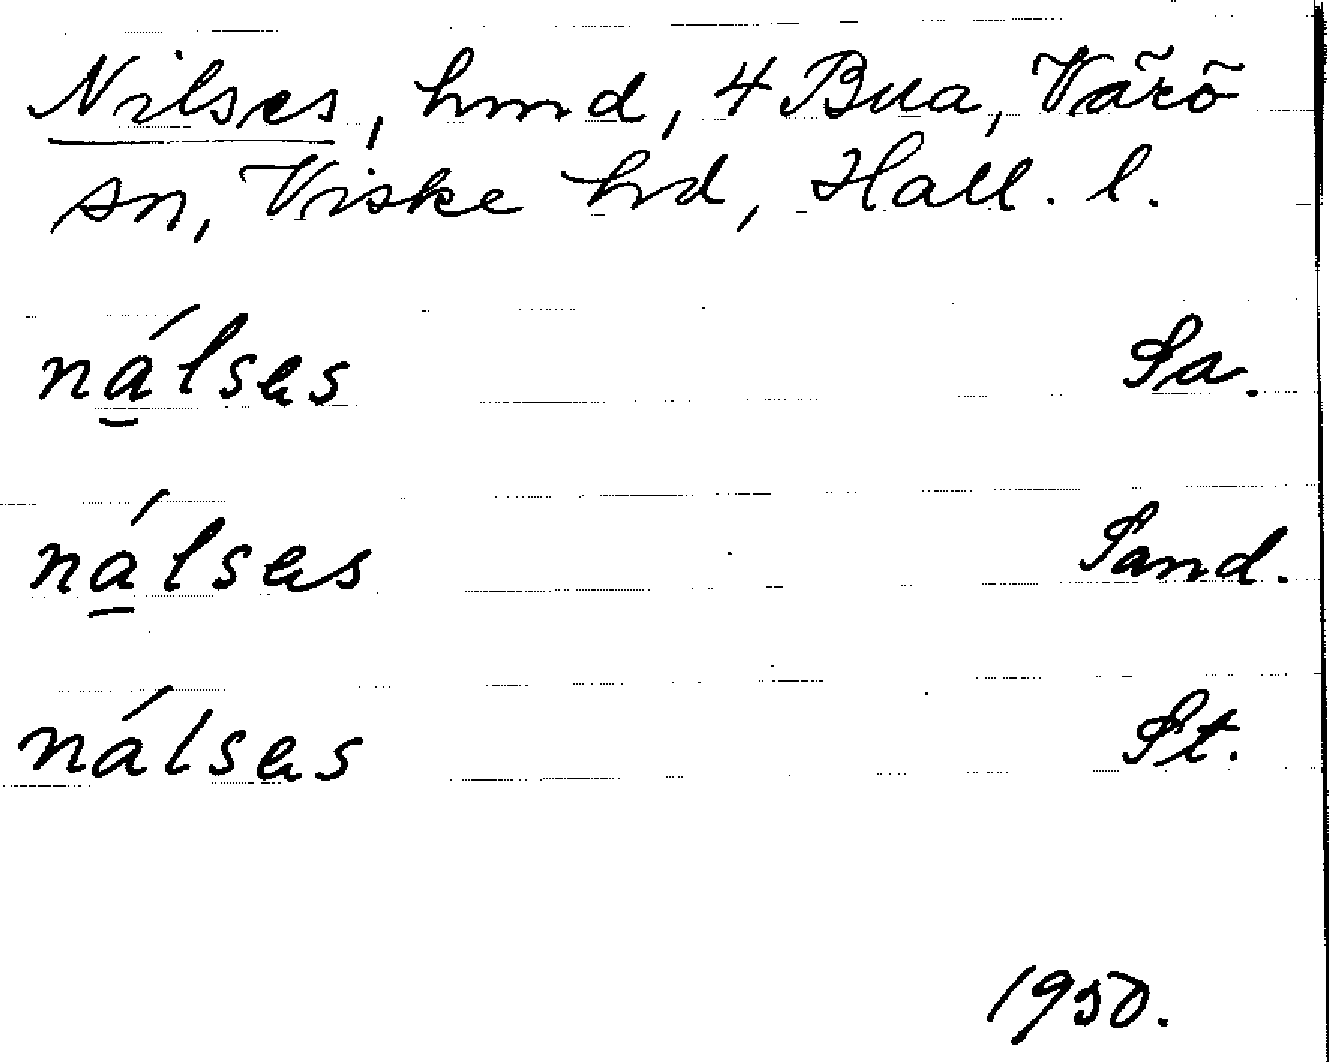 Nilses, hmd, 4 Bua, Värö
sn, Viske hd, Hall. l.
nálses Sa.
nálses Sand.
nálses St.
1950.